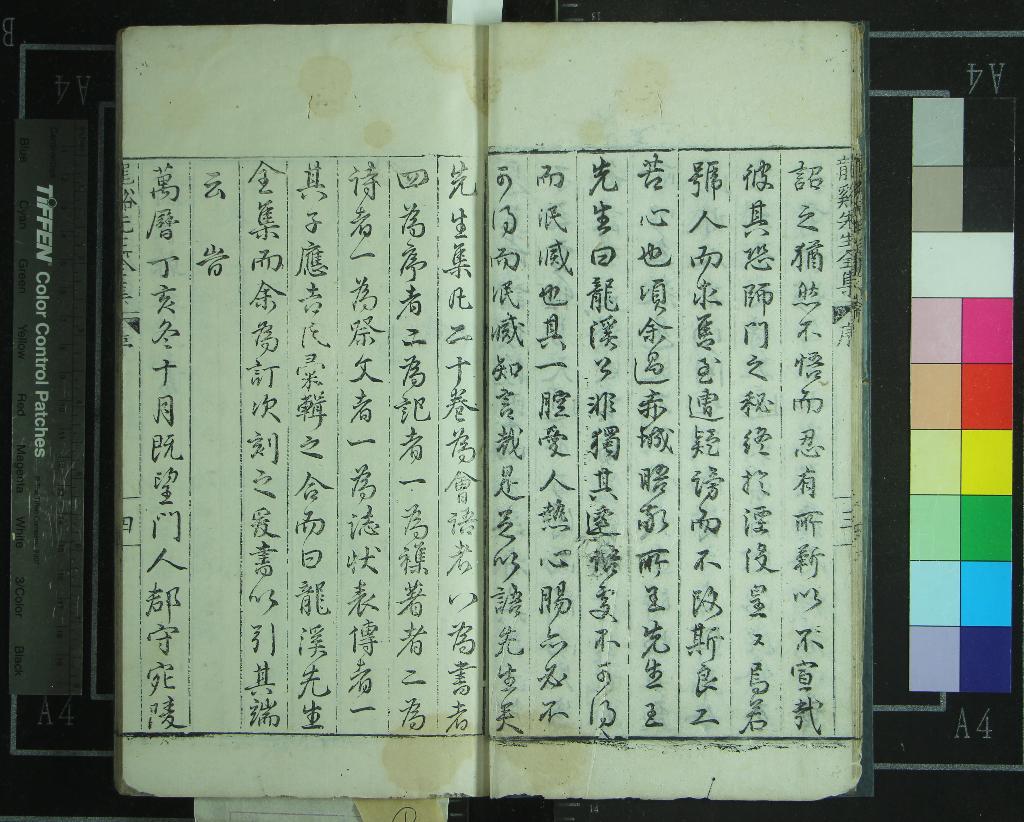 龍谿先生全集 序 三
詔之猶然不悟而忍有所靳以不宣哉
彼其恐師門之秘終於湮沒皇々焉若
號人而求焉至遭疑謗而不改斯良工
苦心也頃余過赤城晤永所至先生至
先生曰龍溪公非獨其邃語文不可得
而泯滅也其一腔愛人熱心腸亦必不
可得而泯滅知言哉是足以語先生矣
先生集凡二十卷為會語者八為書者
四為序者二為記者一為襍著者二為
詩者一為祭文者一為誌狀表傳者一
其子應吉氏彙輯之合而曰龍溪先生
全集而余為訂次刻之爰書以引其端
云 旹
萬曆丁亥冬十月既望門人都守宛陵
龍谿先生全集 序 四
TIFFEN Color Control Patches
Blue Cyan Green Yellow Red Magenta White 3/Color Black
A4
A4
A4
A4
B